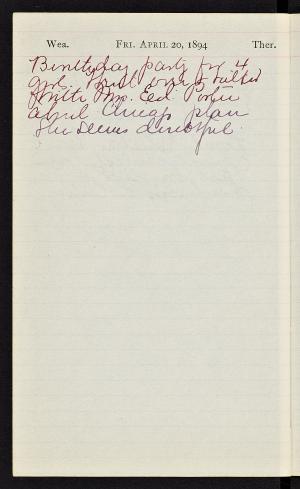 Wea. FRI. APRIL 20, 1894 Ther.
Birthday party for 4
girls. went over & talked
with Mrs. Ed Porter
about Chicago plan
She seems doubtful.